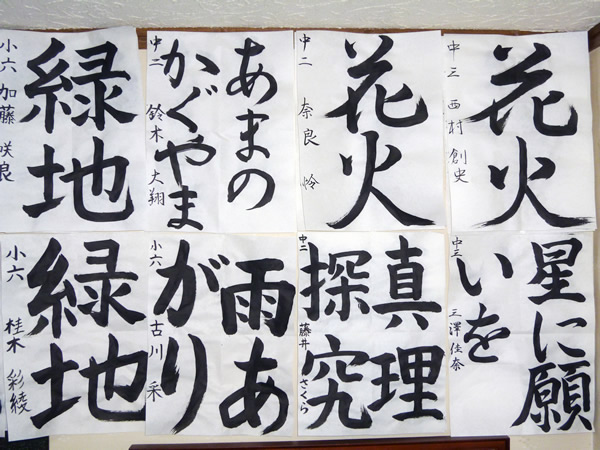 花火
中三 西村創史
花火
中二 奈良怜
あまの
かぐやま
中二 鈴木大翔
緑地
小六 加藤咲良
星に願
いを
中三 三澤佳奈
真理
探究
中二 藤井さくら
雨あ
がり
小六 古川采
緑地
小六 桂木彩綾